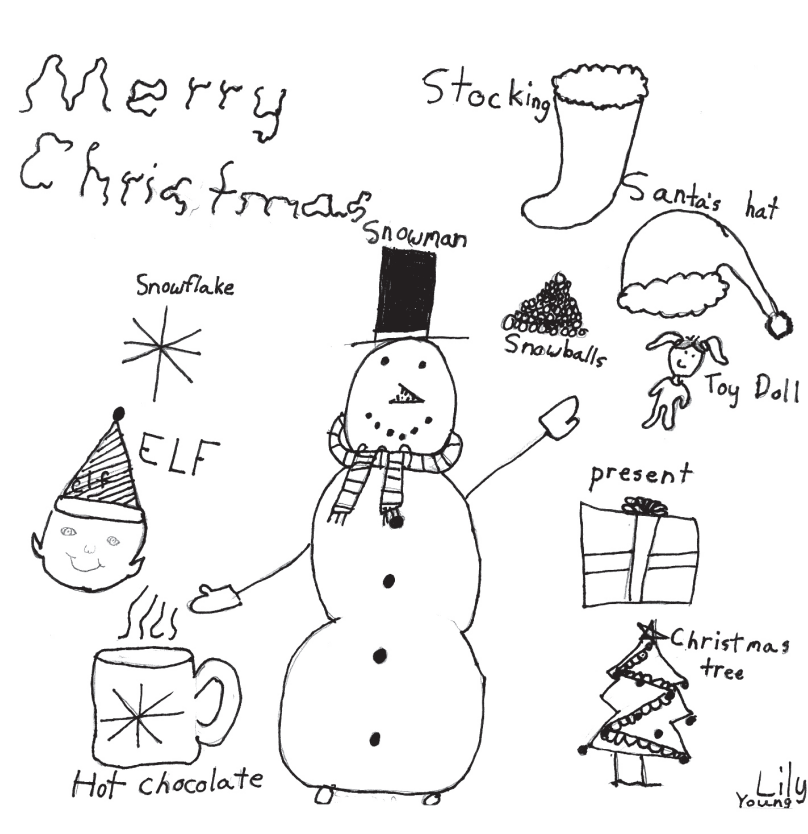 Merry
Christmas
Stocking
Santa's hat
Snowman
Snowflake
Snowballs
Toy Doll
ELF
elf
present
Christmas
tree
Hot chocolate
Lily
Young